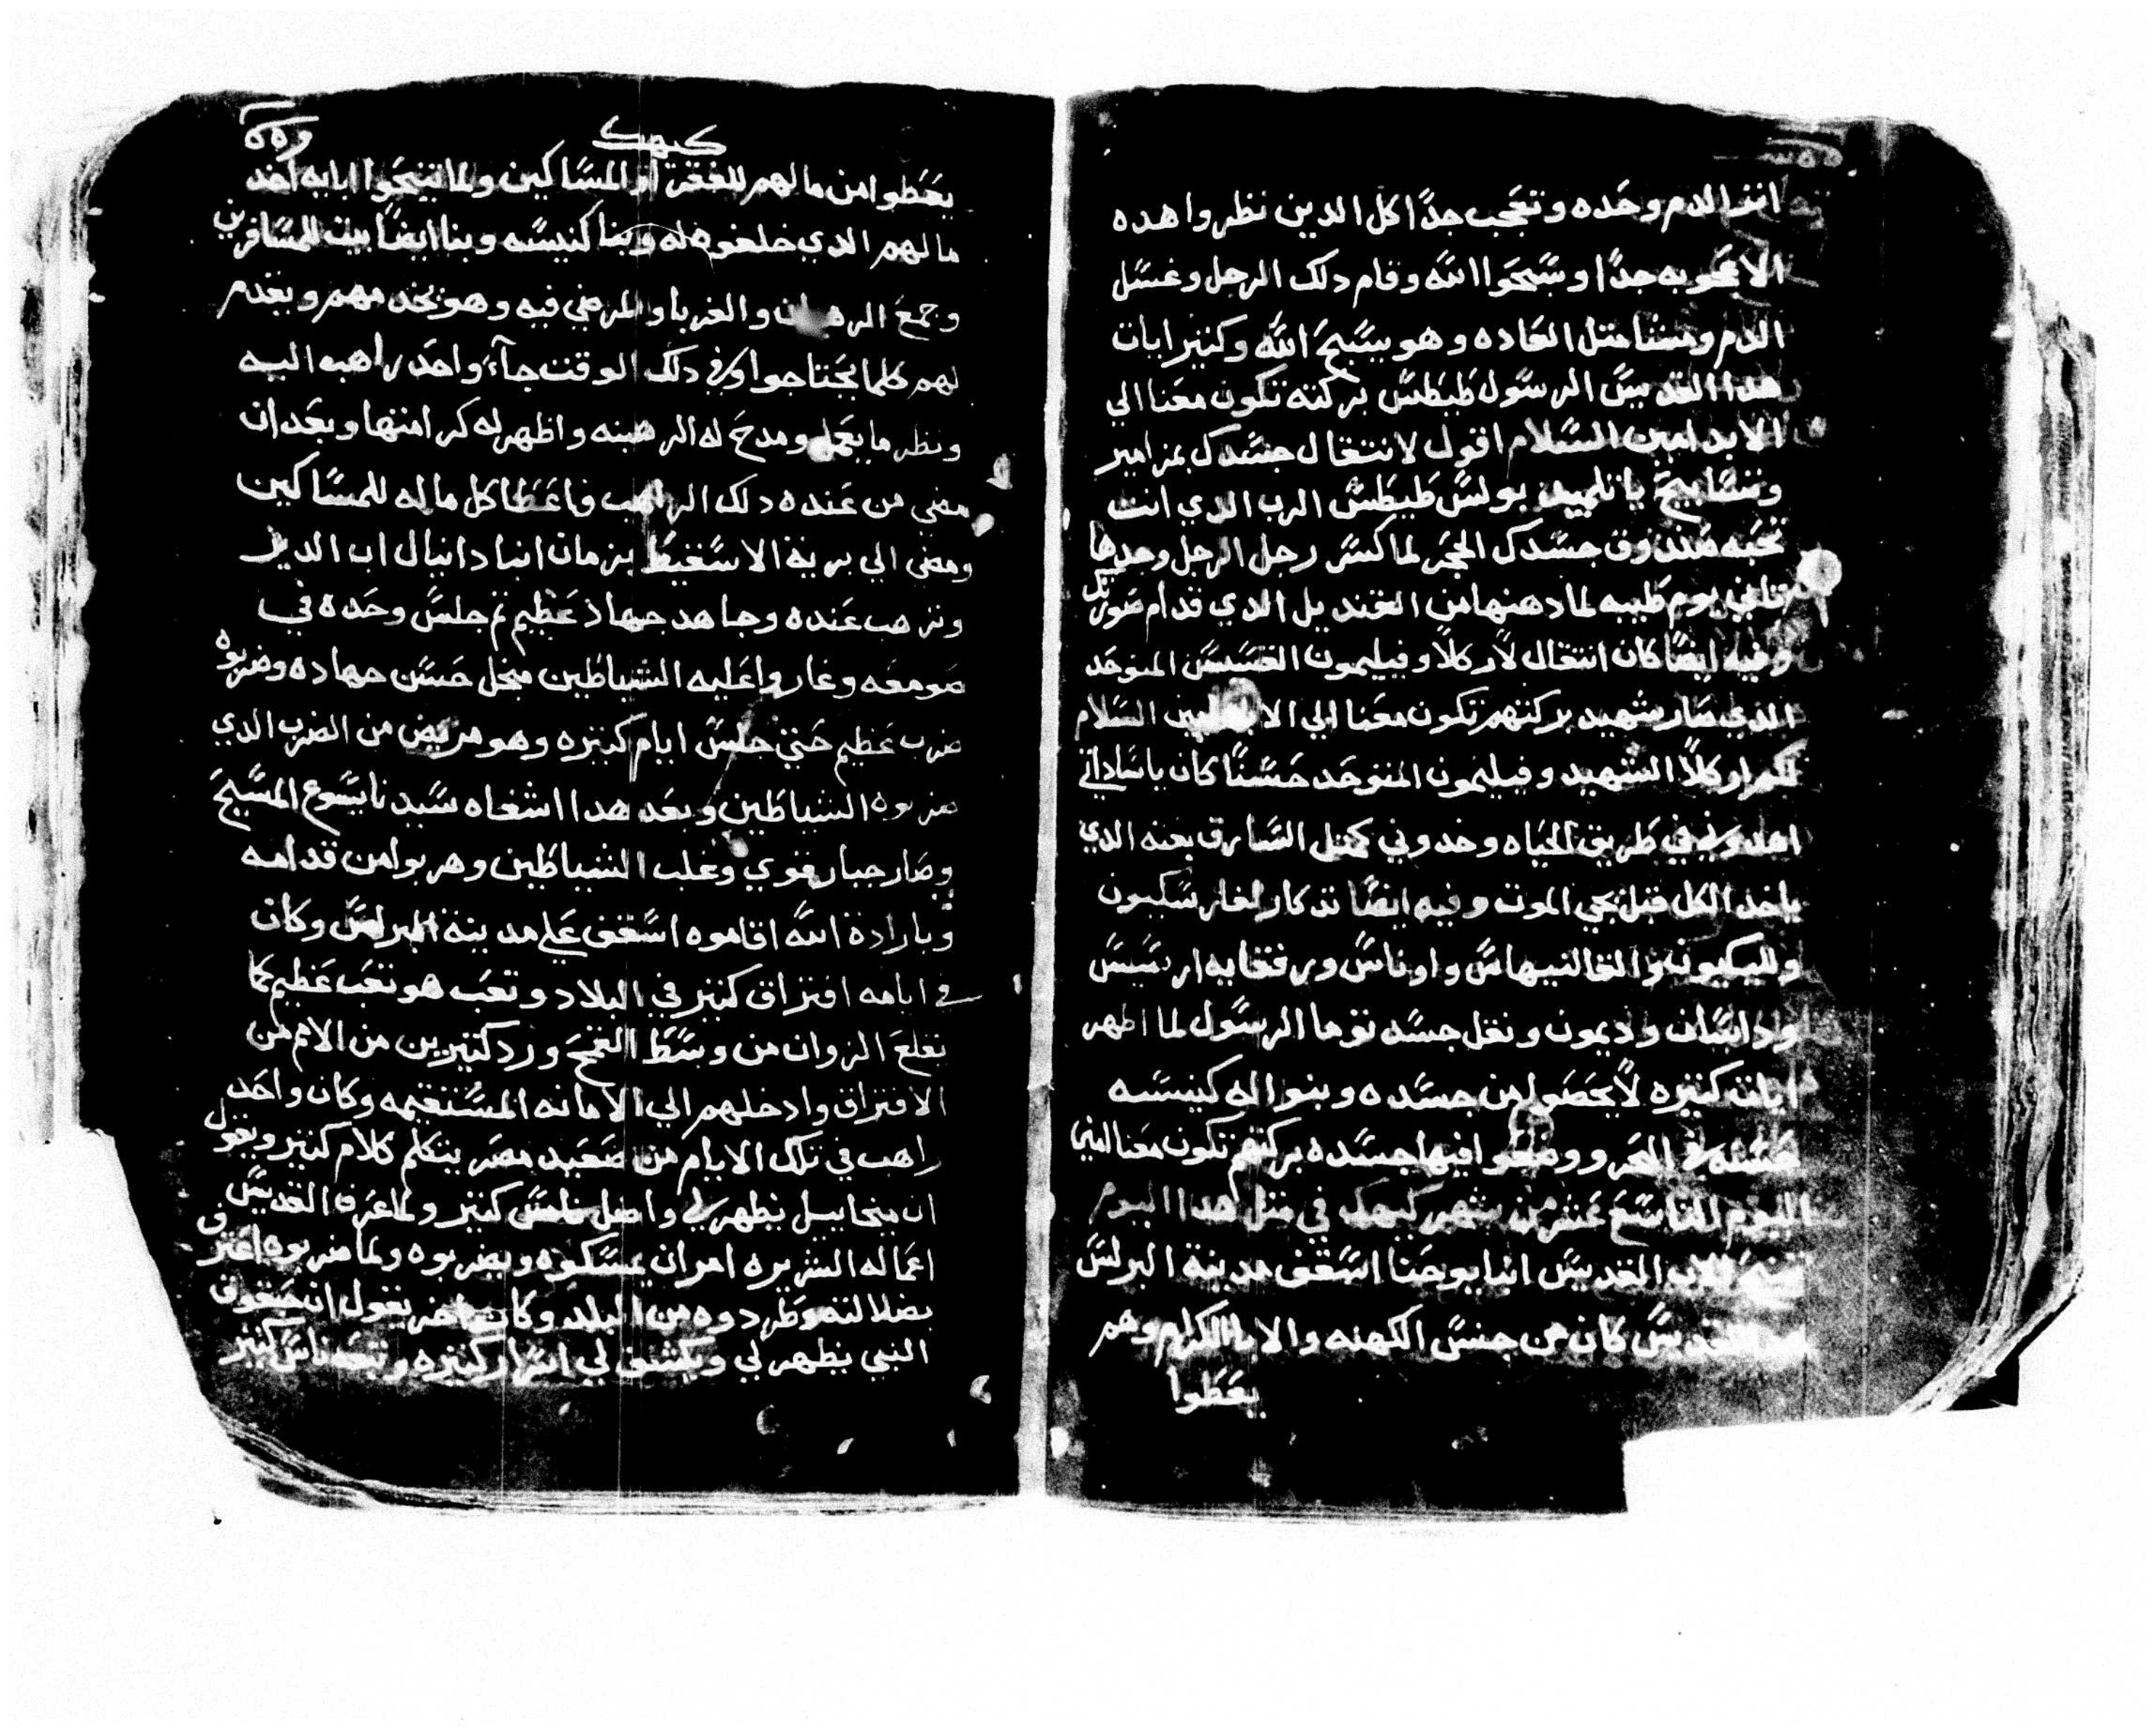 اثر الدم وحده وتعجب جدًا كل الدين نظروا هده
الاعجوبه جدًا وسبحوا الله وقام دلك الرجل وغسل
الدم ومشا متل العاده وهو يسبح الله وكتير ايات
هدا القديس الرسول طيطس بركته تكون معنا الي
الابد امين السلام اقول لانتقال جسدك بمزامير
وتسابيح يا تلميد بولس طيطس الرب الدي انت
تحبه صندوق جسدك الحجر لما كسر رجل الرجل وحدها
يوم طيبه لما دهنها من القنديل الدي قدام صورتك
وفيه ايضًا كان انتقال لاركلا وفيليمون القسيس المتوحد
الدي صار شهيد بركتهم تكون معنا الي الابد امين السلام
لكم اركلا الشهيد وفيليمون المتوحد حسنًا كان يا ساداتي
اهدوني في طريق الحياه وخدوني كمتل السارق بعنه الدي
ياخد الكل قبل يجي الموت وفيه ايضًا تدكار لغار سكيون
وارتميس
ودايسان وديمون ونقل جسد توما الرسول لما اظهر
ايات كتيره لا يحصوا من جسده وبنوا له كنيسه
حسنه في البحر ووضعوا فيها جسده بركتهم تكون معنا امين
اليوم التاسع عشر من شهر كيهك في متل هدا اليوم
تنيح الاب القديس انبا يوحنا اسقف مدينة البرلس
هدا القديس كان من جنس الكهنه والابا الكرام وهم
يعطوا
كيهك
يعطوا من مالهم للفقرا والمساكين ولما تنيحوا ابايه اخد
مالهم الدي خلفوه له وبنا كنيسه وبنا ايضًا بيت للمسافرين
وجمع الرهبان والغربا والمرضي فيه وهو يخدمهم ويقدم
لهم كلما يحتاجوا وفي دلك الوقت جاء واحد راهب اليه
ونظر ما يعمل ومدح له الرهبنه واظهر له كرامتها وبعد ان
مضي من عنده دلك الراهب فاعطا كل ماله للمساكين
ومضي الي برية الاسقيط بزمان انبا دانيال اب الدير
وترهب عنده وجاهد جهاد عظيم تم جلس وحده في
صومعه وغاروا عليه الشياطين من اجل حسن جهاده وضربوه
ضرب عظيم حتي جلس ايام كتيره وهو مريض من الضرب الدي
ضربوه الشياطين وبعد هدا اشفاه سيدنا يسوع المسيح
وصار جبار قوي وغلب الشياطين وهربوا من قدامه
وبارادة الله اقاموه اسقف علي مدينة البرلس وكان
في ايامه افتراق كتير في البلاد وتعب هو تعب عظيم كما
تقلع الزوان من وسط القمح ورد كتيرين من الامم من
الافتراق وادخلهم الي الامانه المستقيمه وكان واحد
راهب في تلك الايام من صعيد مصر يتكلم كلام كتير ويقول
ان ميخاييل يظهر لي واضل ناس كتير ولما عرف القديس
اعماله الشريره امر ان يمسكوه ويضربوه ولما ضربوه اعترف
بضلالته وطردوه من البلد وكان اخر يقول ان حبقوق
النبي يظهر لي ويكشف لي اسرار كتيره وتبعه ناس كتير